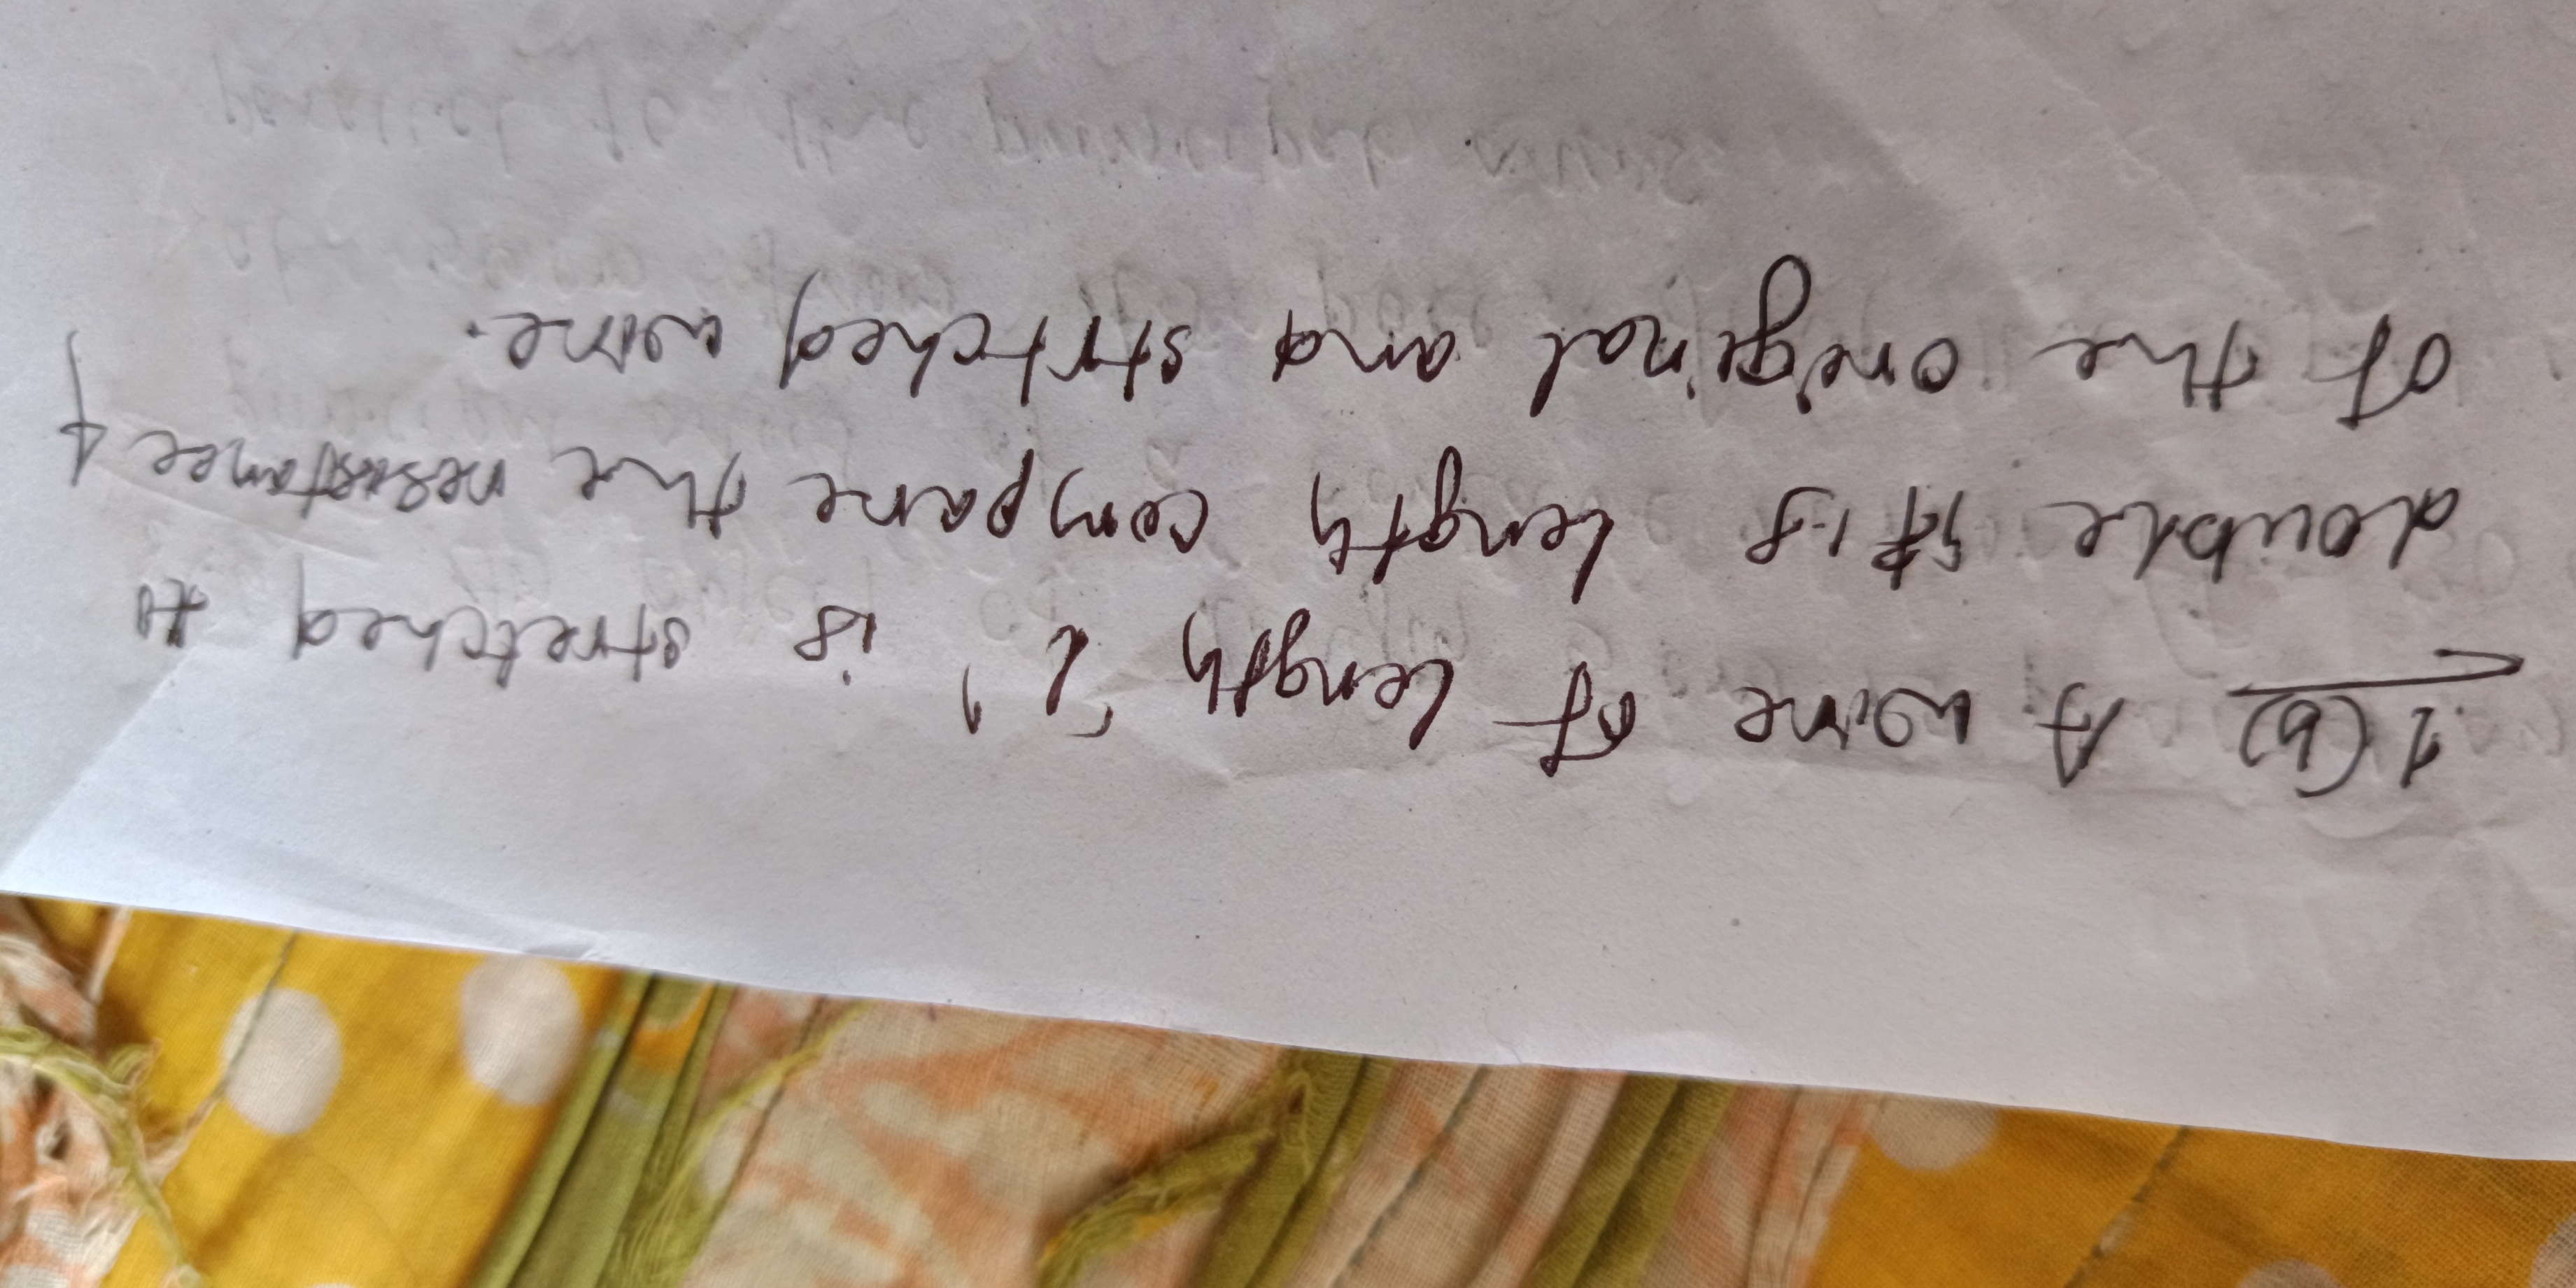 1(b) A wire of length 'l' is stretched to
double it's length compare the resistance
of the original and strtched wire.